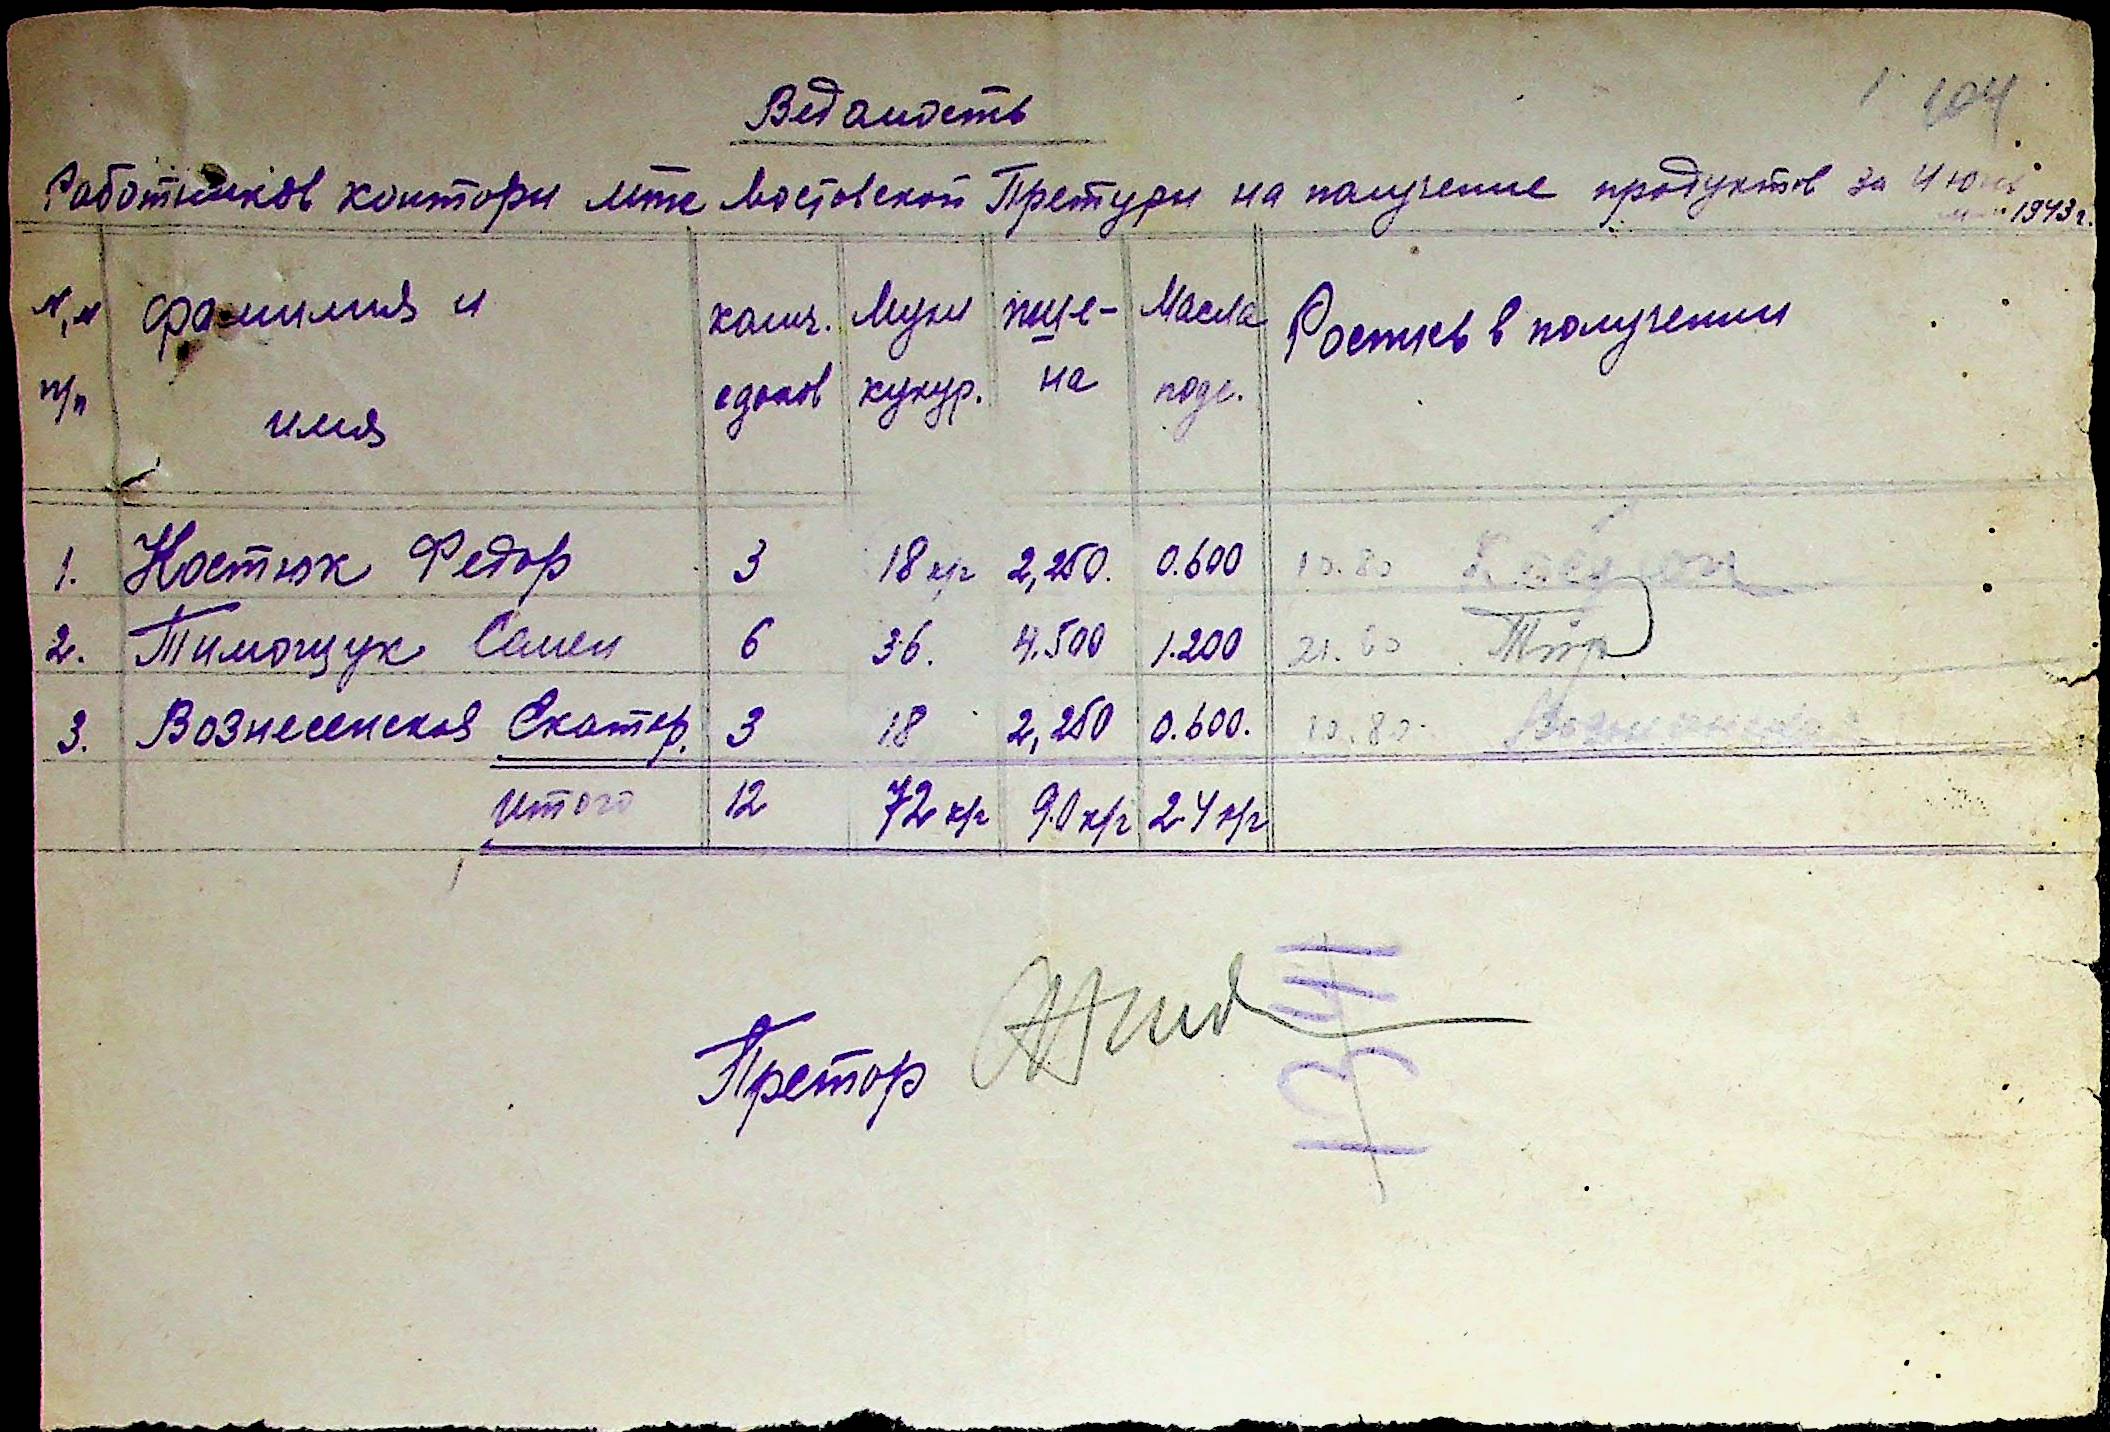 104
Ведомость
Работников контори мтс Мостовской Претури на получение продуктов за
1943 г.
№,№ фамилия и колич. Муки пше- Масла Роспись в получении
п/п имя едоков кукур. на подс.
1. Костюк Федор 3 18 к/г 2,250. 0.600 10.80
2. Тимощук Семен 6 36. 4.500 1.200 21.60
3. Вознесенская Екатер. 3 18 2,250 0.600. 10.80
итого 12 72 к/г 9.0 к/г 2.4 к/г
Претор